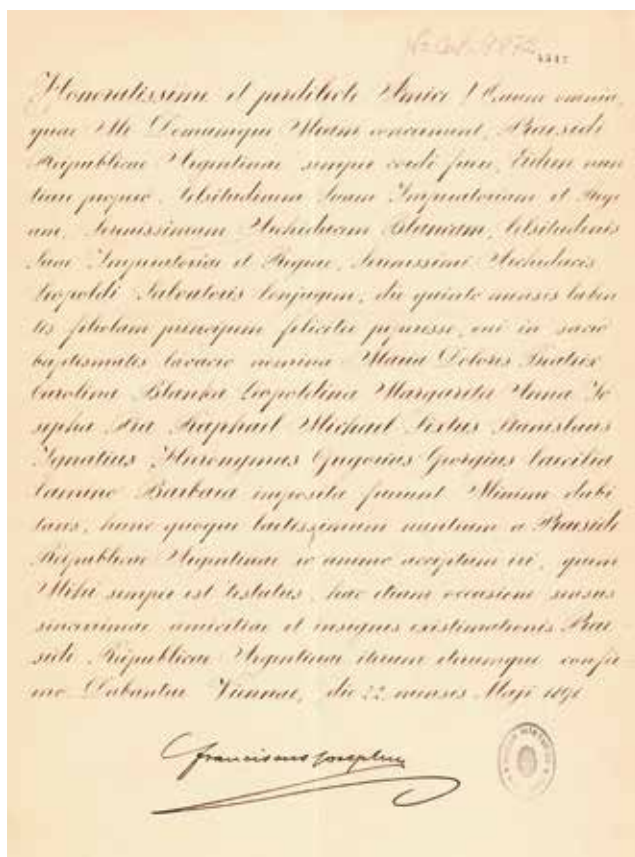 Honoratissime et perdilecte Amice! Quum omnia,
quae Me Domumque Meam concernunt, Praesidi
Reipublicae Argentinae semper cordi sint, Eidem nun
tiare propero, Celsitudinem Suam Imperatoriam et Regi
am, Serenissimam Archiducem Blancam, Celsitudinis
Suae Imperatoriae et Regiae, Serenissimi Archiducis
Leopoldi Salvatoris conjugem, die quinto mensis laben
tis filiolam principem feliciter peperisse, cui in sacro
baptismatis lavacro nomina Maria Dolores Beatrix
Carolina Blanka Leopoldina Margarita Anna Jo
sepha Pia Raphael Michael Sixtus Stanislaus
Ignatius Hieronymus Gregorius Georgius Caecilia
Barbara imposita fuerunt. Minime dubi
tans, hunc quoque laetissimum nuntium a Praeside
Reipublicae Argentinae eo animo acceptum iri, quem
Mihi semper est testatus, hac etiam occasione sensus
sincerrimae amicitiae et insignis existimationis Prae
sidi Reipublicae Argentinae iterum iterumque confir
mo. Dabantur Viennae, die 22 mensis Maji 1891
Franciscus Josephus